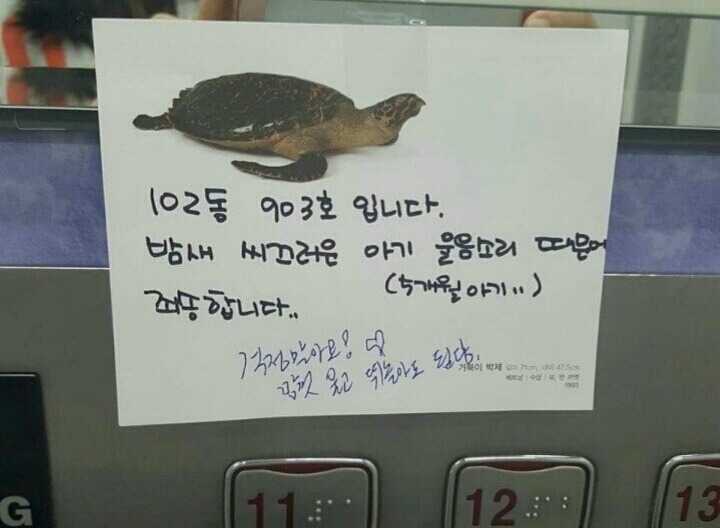 102동 903호 입니다.
밤새 씨끄러운 아기 울음소리 때문에
(5개월 아기..)
죄송합니다..
걱정말아요!
맘껏 울고 뛰놀아도 된답니다.
거북이 박제
G
11
12
13